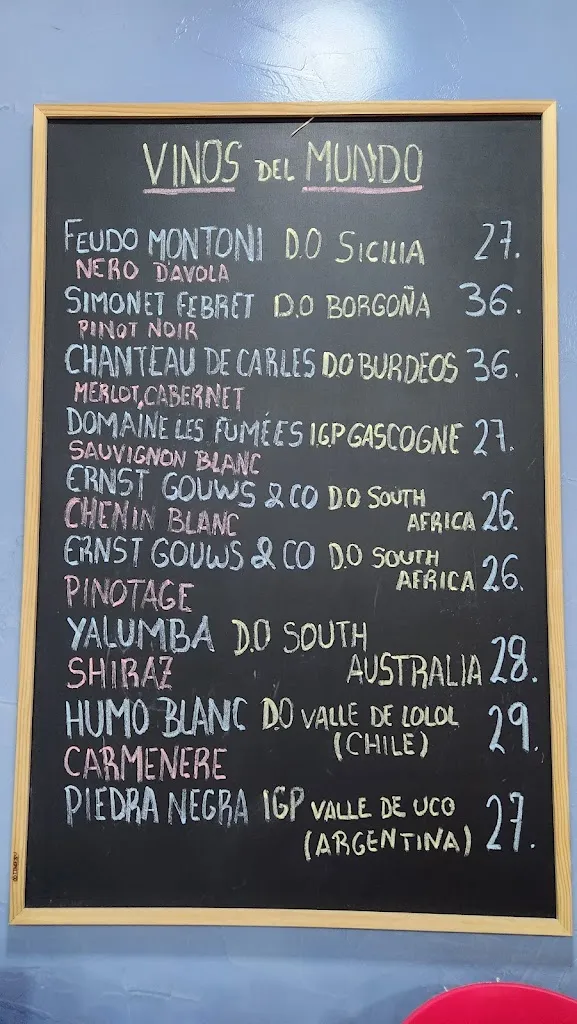 VINOS DEL MUNDO
FEUDO MONTONI D.O SICILIA 27.
NERO D'AVOLA
SIMONET FEBRET D.O BORGOÑA 36.
PINOT NOIR
CHANTEAU DE CARLES DO BURDEOS 36.
MERLOT, CABERNET
DOMAINE LES FUMÉES I.G.P GASCOGNE 27.
SAUVIGNON BLANC
ERNST GOUWS & CO D.O SOUTH
AFRICA 26.
CHENIN BLANC
ERNST GOUWS & CO D.O SOUTH
AFRICA 26.
PINOTAGE
YALUMBA D.O SOUTH
SHIRAZ AUSTRALIA 28.
HUMO BLANC D.O VALLE DE LOLOL
(CHILE) 29.
CARMENERE
PIEDRA NEGRA IGP VALLE DE UCO
(ARGENTINA) 27.